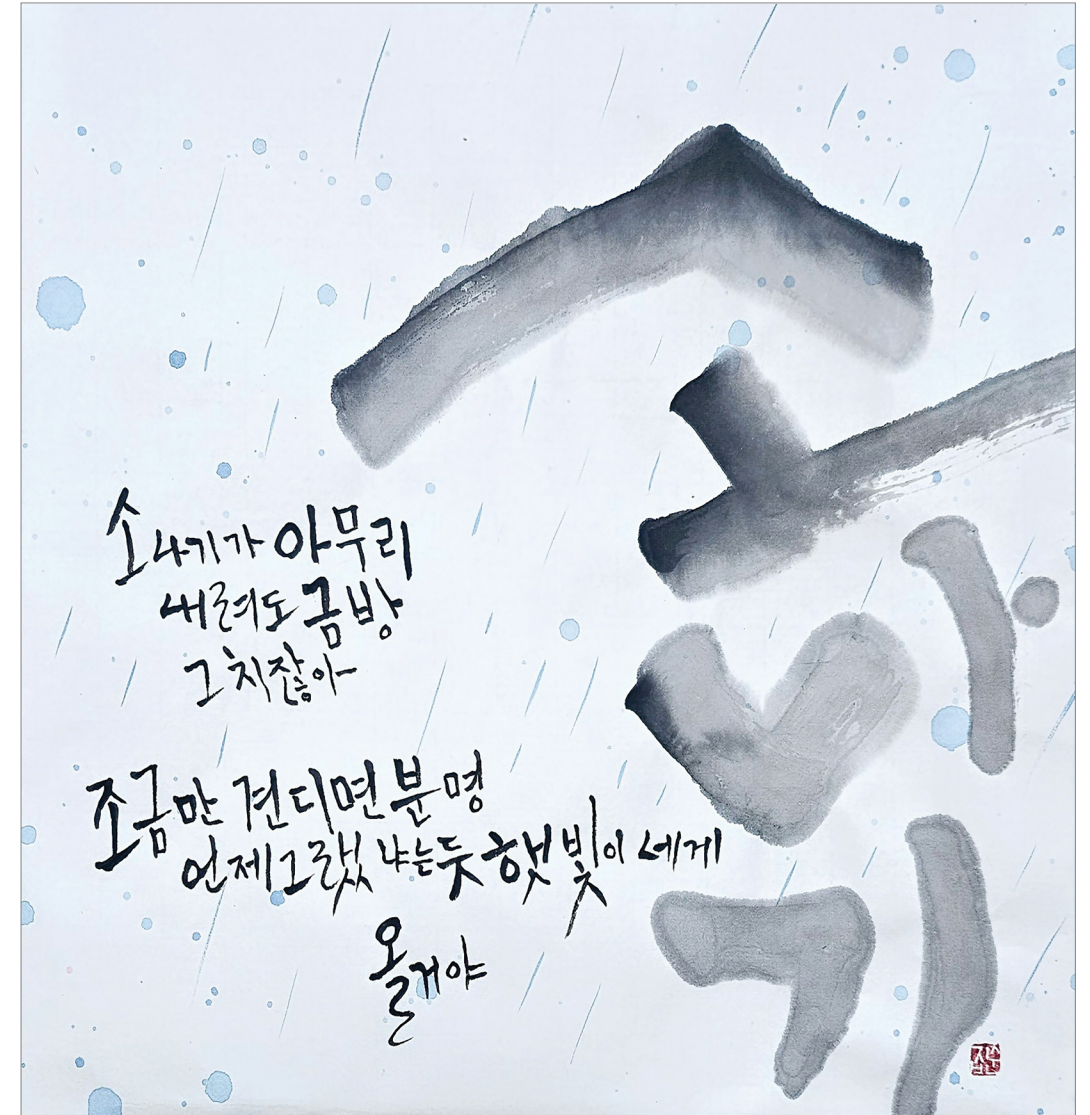 소나기
소나기가 아무리
내려도 금방
그치잖아
조금만 견디면 분명
언제그랬냐는듯 햇빛이 세게
올거야